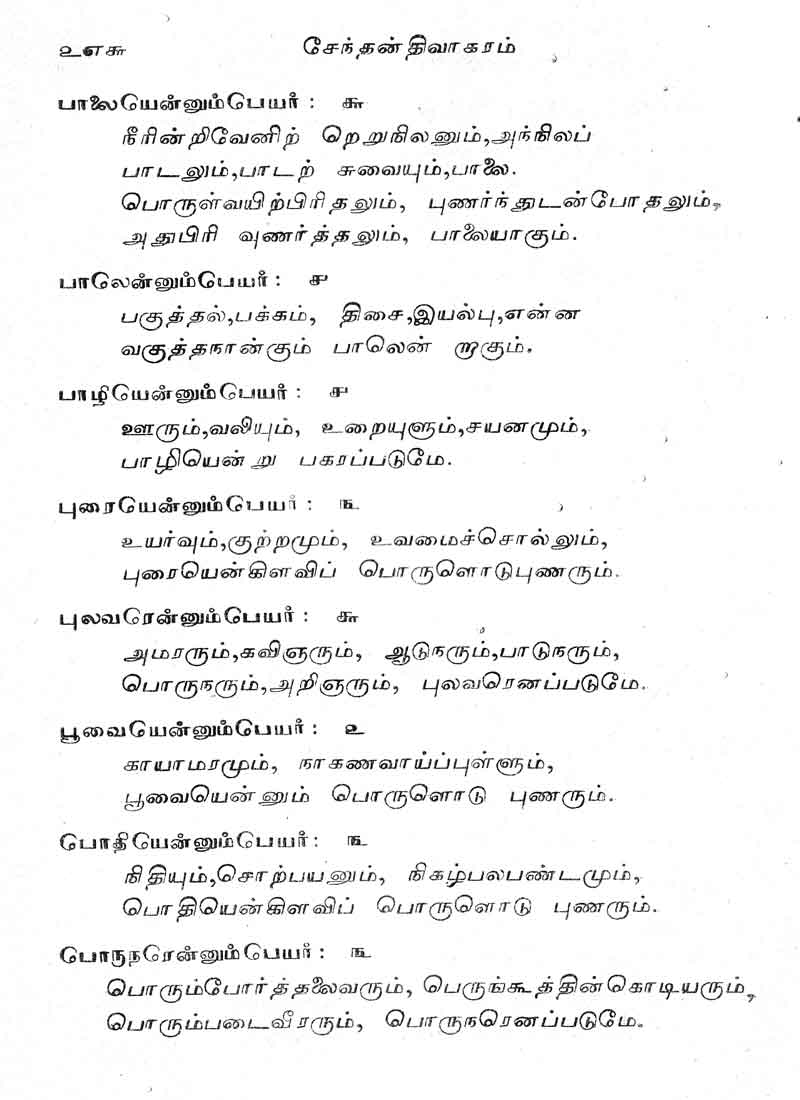 ௨௭௬ சேந்தன் திவாகரம்
பாலையென்னும்பெயர் : ௬
நீரின்றிவேனிற் றெறுநிலனும்,அந்நிலப்
பாடலும்,பாடற் சுவையும்,பாலை.
பொருள்வயிற்பிரிதலும், புணர்ந்துடன்போதலும்,
அதுபிரி வுணர்த்தலும், பாலையாகும்.
பாலென்னும்பெயர் : ௪
பகுத்தல்,பக்கம், திசை,இயல்பு,என்ன
வகுத்தநான்கும் பாலென் றாகும்.
பாழியென்னும்பெயர் : ௪
ஊரும்,வலியும், உறையுளும்,சயனமும்,
பாழியென்று பகரப்படுமே.
புரையென்னும்பெயர் : ௩
உயர்வும்,குற்றமும், உவமைச்சொல்லும்,
புரையென்கிளவிப் பொருளொடுபுணரும்.
புலவரென்னும்பெயர் : ௬
அமரரும்,கவிஞரும், ஆடுநரும்,பாடுநரும்,
பொருநரும்,அறிஞரும், புலவரெனப்படுமே.
பூவையென்னும்பெயர் : ௨
காயாமரமும், நாகணவாய்ப்புள்ளும்,
பூவையென்னும் பொருளொடு புணரும்.
பொதியென்னும்பெயர் : ௩
நிதியும்,சொற்பயனும், நிகழ்பலபண்டமும்,
பொதியென்கிளவிப் பொருளொடு புணரும்.
பொருநரென்னும்பெயர் : ௩
பொரும்போர்த்தலைவரும், பெருங்கூத்தின்கொடியரும்,
பொரும்படைவீரரும், பொருநரெனப்படுமே.